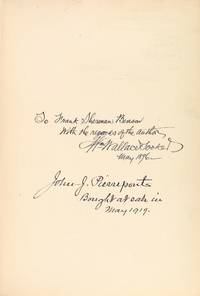 To Frank Sherman Benson
With the regards of the author
Wm Wallace Tooker
May 1896
John J. Pierrepont
Bought at sale in
May 1919.